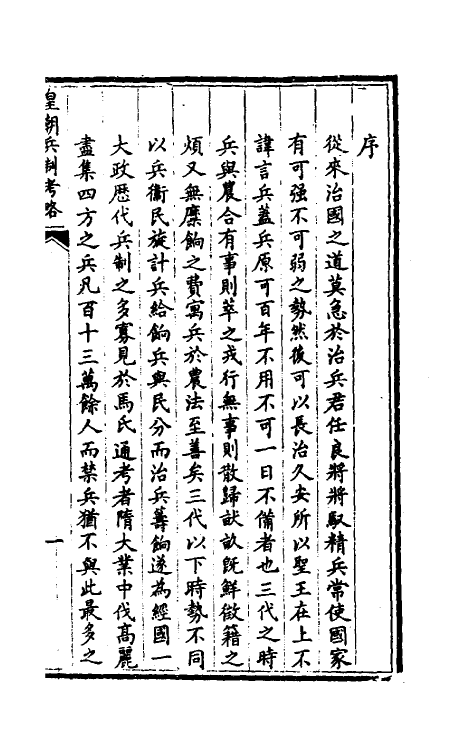 序
從來治國之道莫急於治兵君任良將將馭精兵常使國家
有可强不可弱之勢然後可以長治久安所以聖王在上不
諱言兵葢兵原可百年不用不可一日不備者也三代之時
兵與農合有事則萃之戎行無事則散歸畎畝旣鮮徵籍之
煩又無糜餉之費寓兵於農法至善矣三代以下時勢不同
以兵衞民旋計兵給餉兵與民分而治兵籌餉遂為經國一
大政歷代兵制之多寡見於馬氏通考者隋大業中伐高麗
盡集四方之兵凡百十三萬餘人而禁兵猶不與此最多之
皇朝兵制考略
一